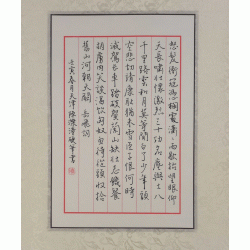 怒髮衝冠憑欄處瀟瀟雨歇抬望眼仰
天長嘯壯懷激烈三十功名塵與土八
千里路雲和月莫等閒白了少年頭
空悲切靖康恥猶未雪臣子恨何時
滅駕長車踏破賀蘭山缺壯志飢餐
胡虜肉笑談渴飲匈奴血待從頭收拾
舊山河朝天闕 岳飛詞
壬寅春月天津硬筆書